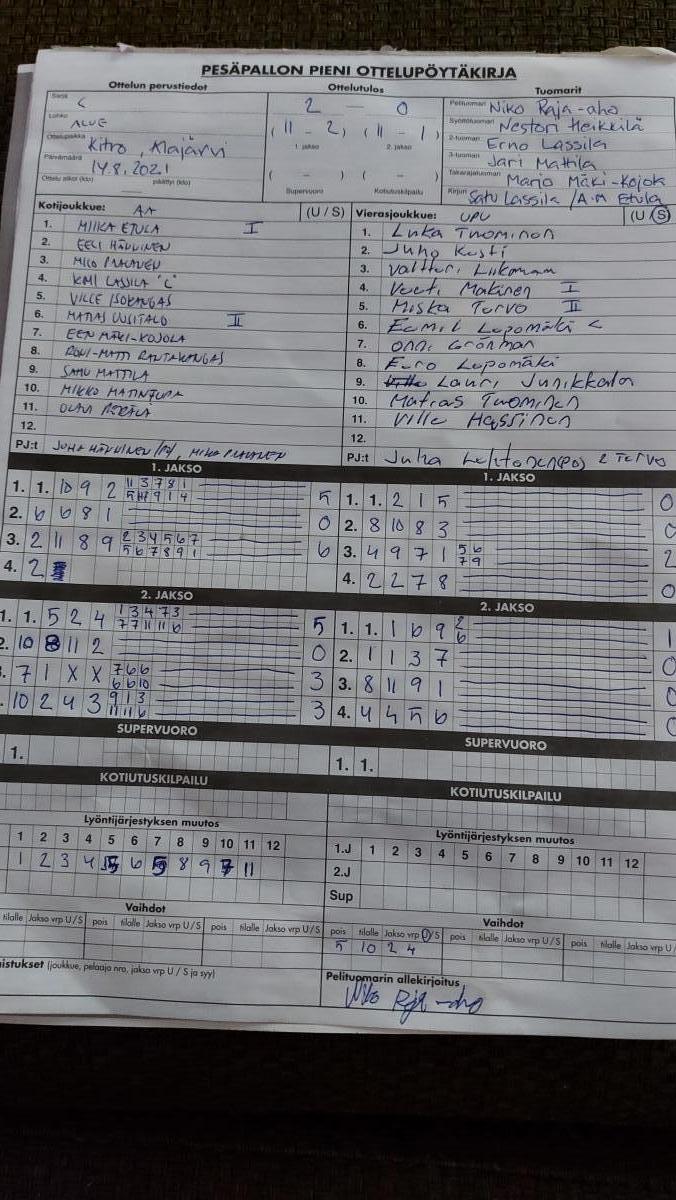 PESÄPALLON PIENI OTTELUPÖYTÄKIRJA
Ottelun perustiedot
Ottelutulos
Tuomarit
Sarja
C
Lohko
ALUE
Ottelupaikka Kitro, Alajärvi
Päivämäärä
14.8.2021
Ottelu alkoi (klo) päättyi (klo)
2 – 0
( 11 – 2 ) ( 11 – 1 )
1. jakso 2. jakso
( – ) ( – )
Supervuoro Kotiutuskilpailu
Pelituomari Niko Raja-aho
Syöttötuomari Nestori Heikkilä
2-tuomari Erno Lassila
3-tuomari Jari Mattila
Takarajatuomari Marjo Mäki-Kojola
Kirjuri Satu Lassila / A-M Etula
Kotijoukkue: AA (U / S)
1. MIIKA ETULA I
2. EELI HÄNNINEN
3. MILO
4. KIMI LASSILA "C"
5. VILLE ISOKANGAS
6. MATIAS UUSITALO II
7. EEN MÄKI-KOJOLA
8. RONI-MATTI RANTAKANGAS
9. SAMU MATTILA
10. MIKKO HATINTUPA
11. OLAVI
12.
PJ:t JUHA HÄNNINEN
Vierasjoukkue: UPU (U / S)
1. Luka Tuominen
2. Juho Kesti
3. Valtteri
4. Veeti Makinen I
5. Miska Tervo II
6. Eemil Lepomäki C
7. Onni Grönman
8. Eero Lepomäki
9. Lauri Junikkala
10. Matias Tuominen
11. Ville Hassinen
12.
PJ:t Juha Lehtonen (PO) Tervo
1. JAKSO
1. 1. 10 9 2 11 3 7 8 1 5
9 1 4
2. 6 6 8 1 0
3. 2 11 8 9 2 3 4 5 6 7 6
5 6 7 8 9 1
4. 2
1. JAKSO
1. 1. 2 1 5 0
2. 8 10 8 3 0
3. 4 9 7 1 5 6 2
7 9
4. 2 2 7 8 0
2. JAKSO
1. 1. 5 2 4 1 3 4 7 3 5
7 7 11 11 6
2. 10 8 11 2 0
3. 7 1 X X 7 6 6 3
6 6 10
. 10 2 4 3 9 1 3 3
11 11 6
2. JAKSO
1. 1. 1 6 9 2 1
6
2. 1 1 3 7 0
3. 8 11 9 1 0
4. 4 4 5 6 0
SUPERVUORO
1.
SUPERVUORO
1. 1.
KOTIUTUSKILPAILU
KOTIUTUSKILPAILU
Lyöntijärjestyksen muutos
1 2 3 4 5 6 7 8 9 10 11 12
1 2 3 4 5 6 5 8 9 7 11
Lyöntijärjestyksen muutos
1.J 1 2 3 4 5 6 7 8 9 10 11 12
2.J
Sup
Vaihdot
tilalle Jakso vrp U/S pois tilalle Jakso vrp U/S pois tilalle Jakso vrp U/S
Vaihdot
pois tilalle Jakso vrp U/S pois tilalle Jakso vrp U/S pois tilalle Jakso vrp U/
5 10 2 4
istukset (joukkue, pelaaja nro, jakso vrp U / S ja syy)
Pelituomarin allekirjoitus
Niko Raja-aho